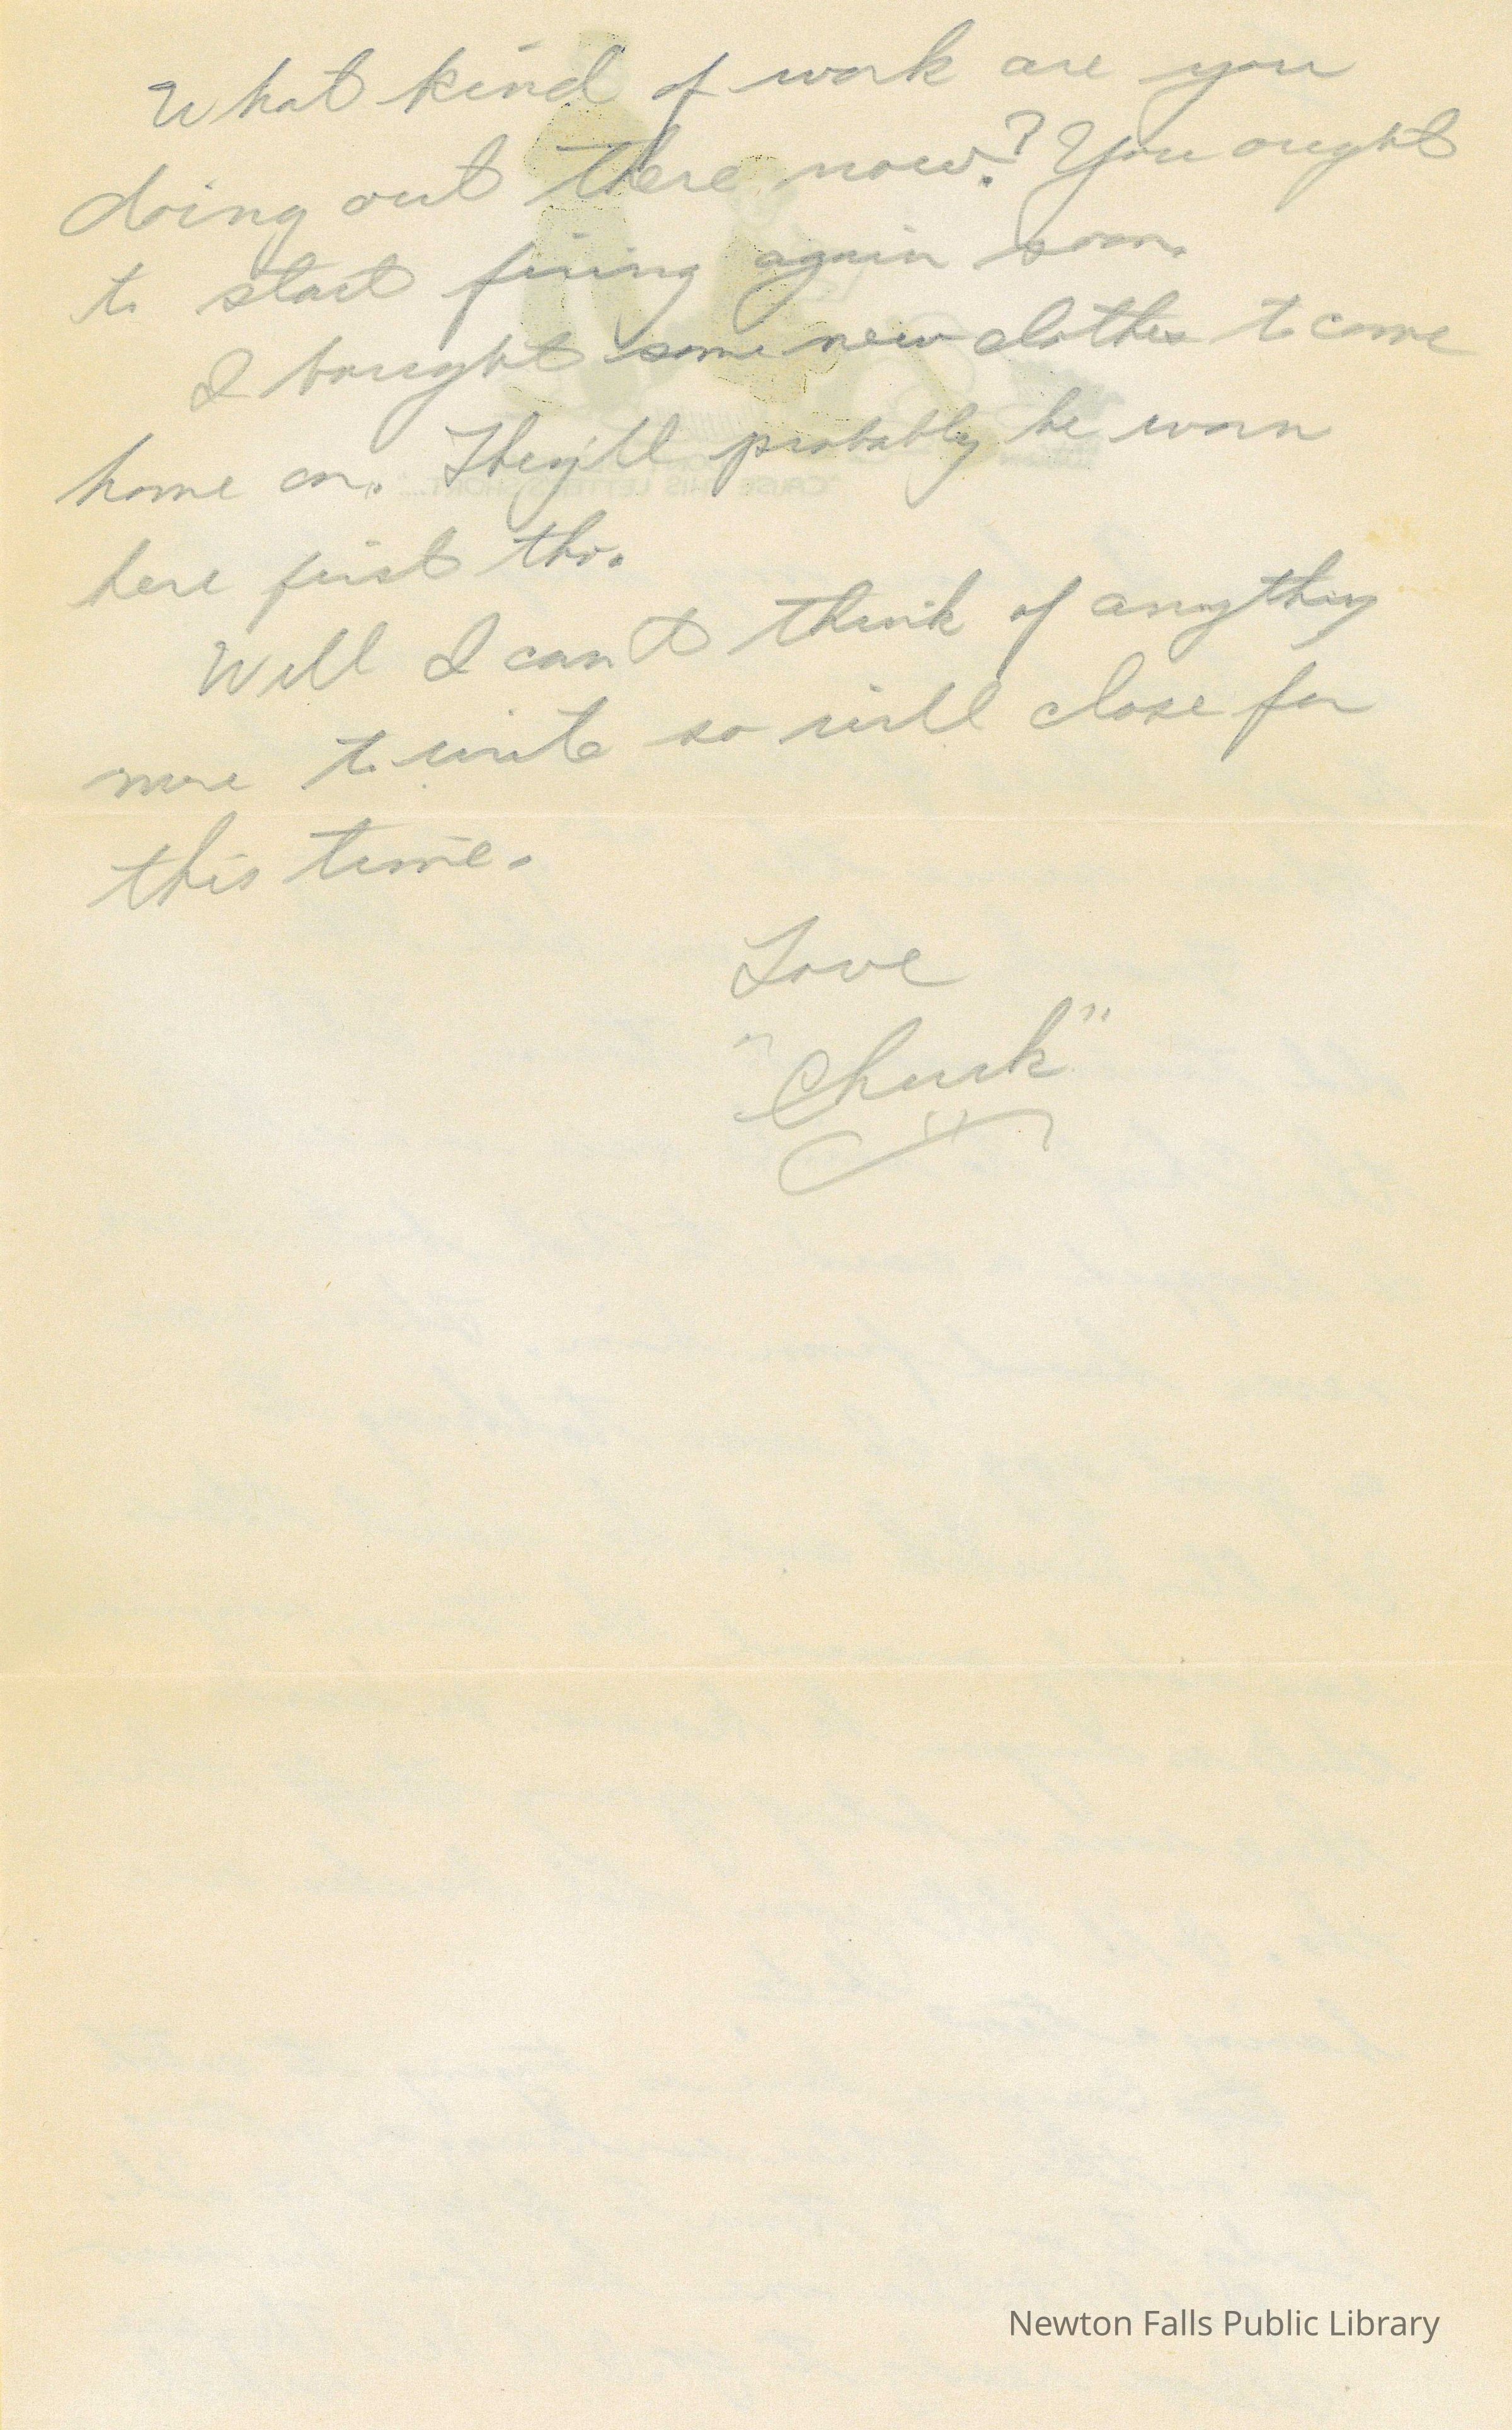 What kind of work are you
doing out there now? You ought
to start firing again soon.
I bought some new clothes to come
home on. They'll probably be worn
here first tho.
Well I can't think of anything
more to write so will close for
this time.
Love
"Chuck"
Newton Falls Public Library